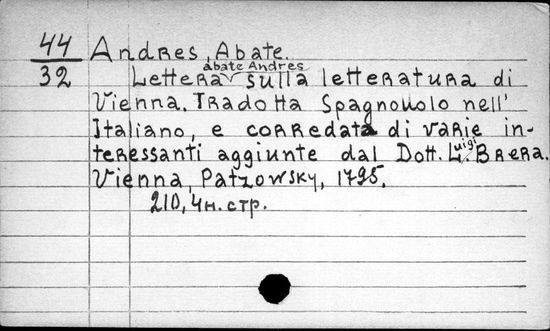 44
32
Andres, Abate.
Lettera abate Andres sulla letteratura di
Vienna. Tradotta Spagnouolo nell'
Italiano, e corredata di varie in-
teressanti aggiunte dal Dott. Luigi Brera.
Vienna, Patzowsky, 1795.
210, 4н. стр.